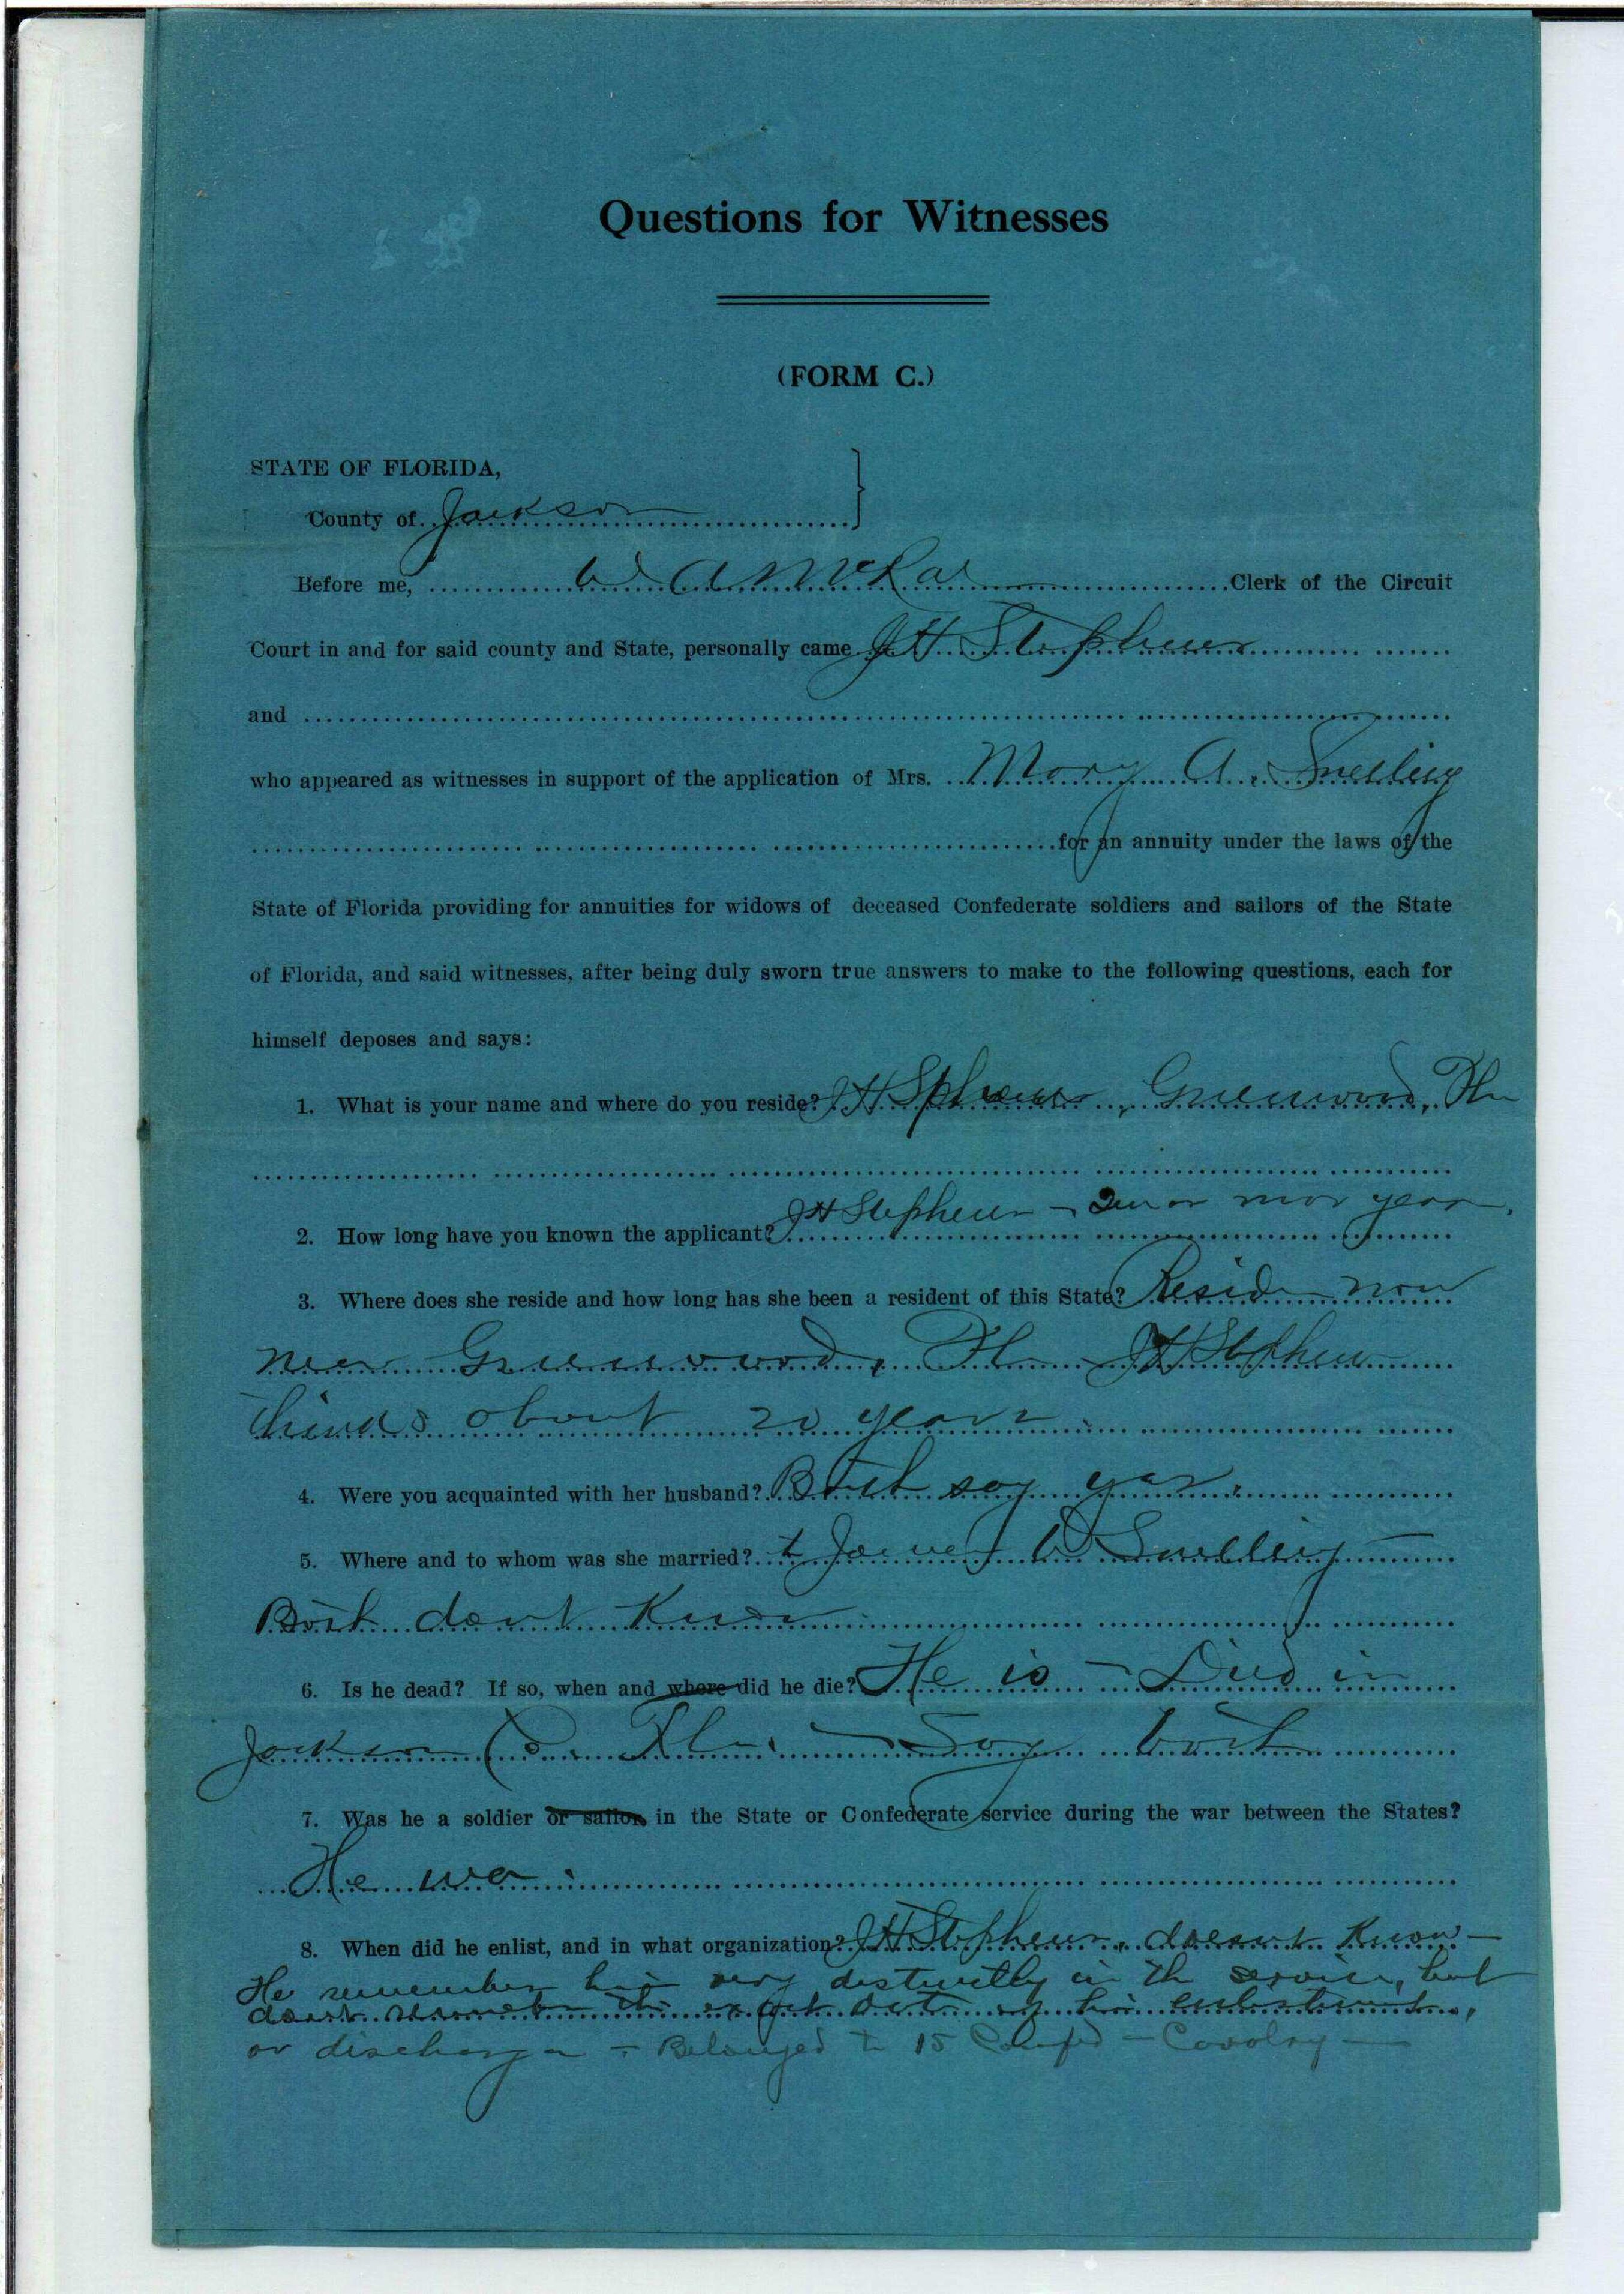 Questions for Witnesses
(FORM C.)
STATE OF FLORIDA,
County of Jackson
Before me, W A McRae Clerk of the Circuit
Court in and for said county and State, personally came J H Stephens
and
who appeared as witnesses in support of the application of Mrs. Mary A. Snelling
for an annuity under the laws of the
State of Florida providing for annuities for widows of deceased Confederate soldiers and sailors of the State
of Florida, and said witnesses, after being duly sworn true answers to make to the following questions, each for
himself deposes and says:
1. What is your name and where do you reside? J H Greenwood, Fla
2. How long have you known the applicant? J H Stephens - or more years.
3. Where does she reside and how long has she been a resident of this State? Resides now
near Greenwood, Fla J H Stephens
thinks about 20 years
4. Were you acquainted with her husband? Both say yes.
5. Where and to whom was she married? to James W Snelling
Both dont know
6. Is he dead? If so, when and where did he die? He is - Died in
Jackson Co. Fla. - Say both
7. Was he a soldier or sailor in the State or Confederate service during the war between the States?
He was
8. When did he enlist, and in what organization? J H Stephens, doesnt know -
He remembers him very distinctly in the service, but
dont remember the exact date of his enlistment,
or discharge - Belonged to 15 Confed - Cavalry -